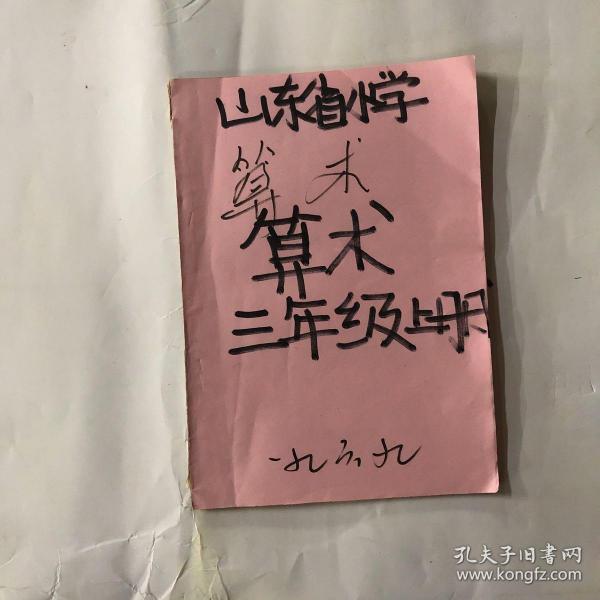 山东省小学
算术
算术
三年级上册
一九六九
孔夫子旧書网
www.kongfz.com